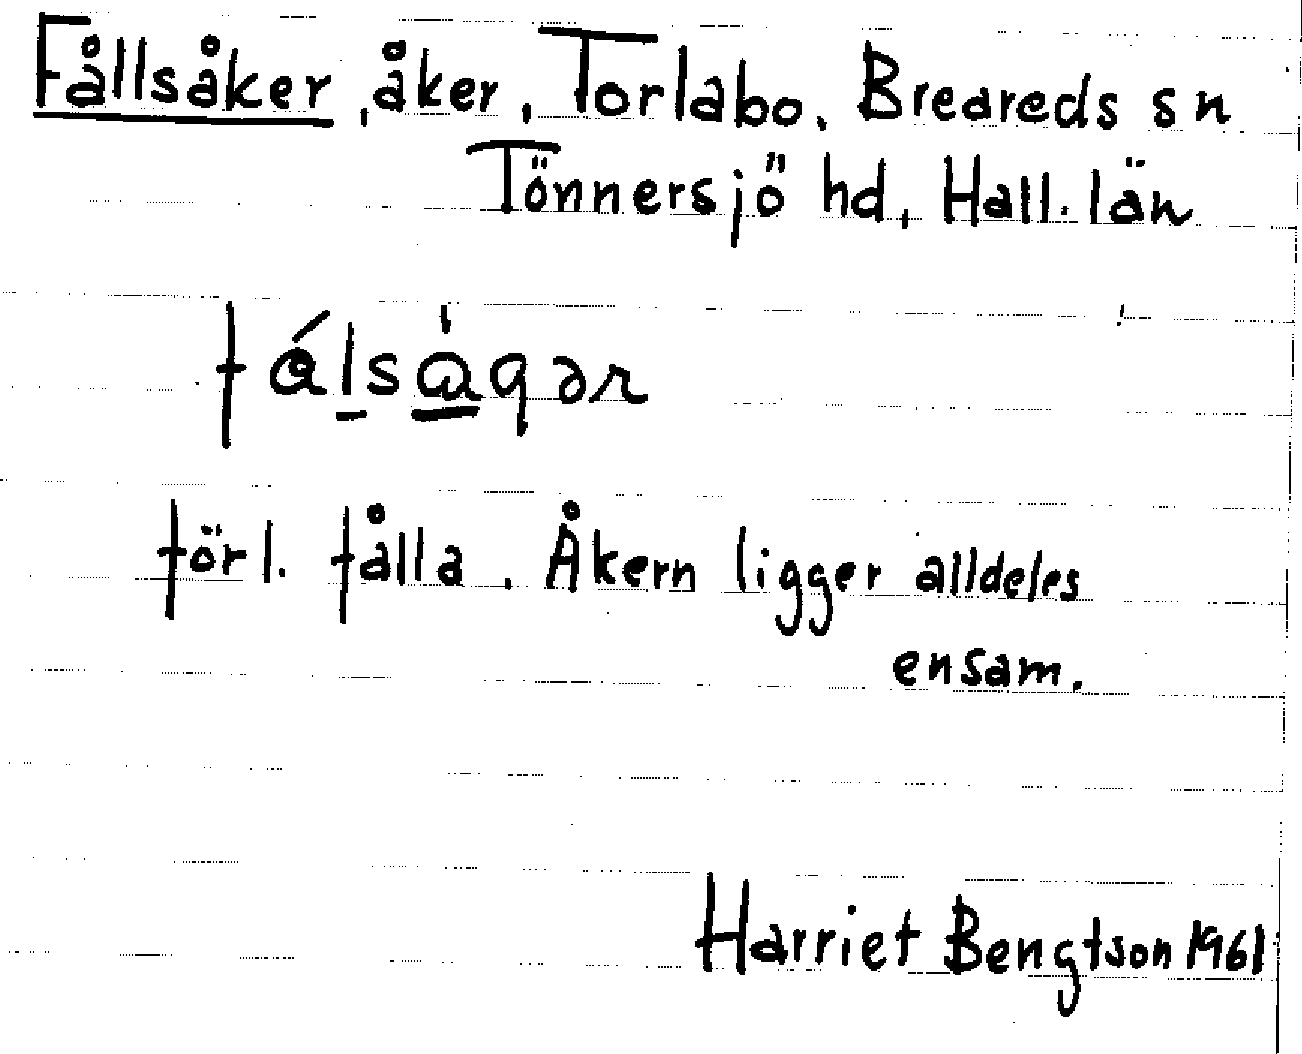 Fållsåker, åker, Torlabo, Breareds sn
Tönnersjö hd, Hall. län
fálsågər
förl. fålla. Åkern ligger alldeles
ensam.
Harriet Bengtson 1961